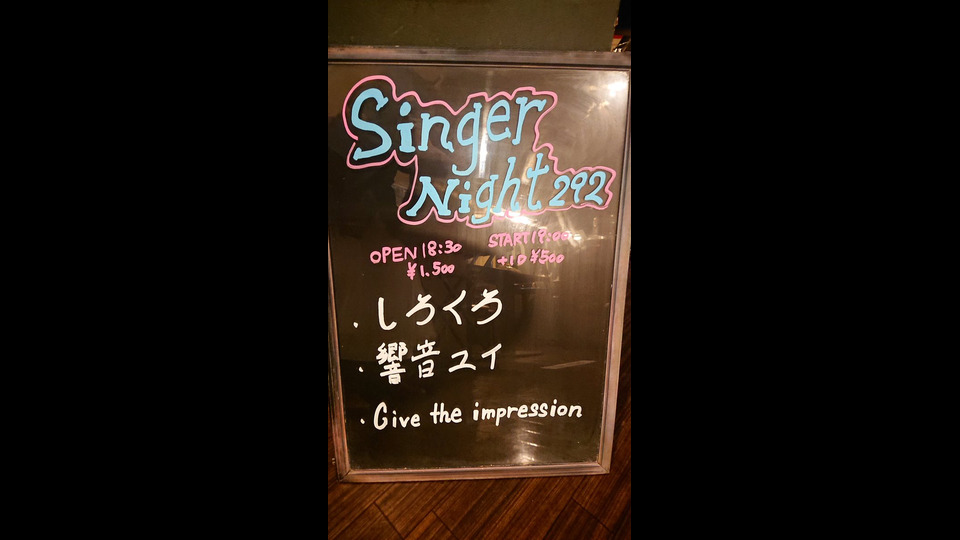 Singer
Night 292
OPEN 18:30 START 19:00
¥1.500 +1D ¥500
・しろくろ
・響音ユイ
・Give the impression